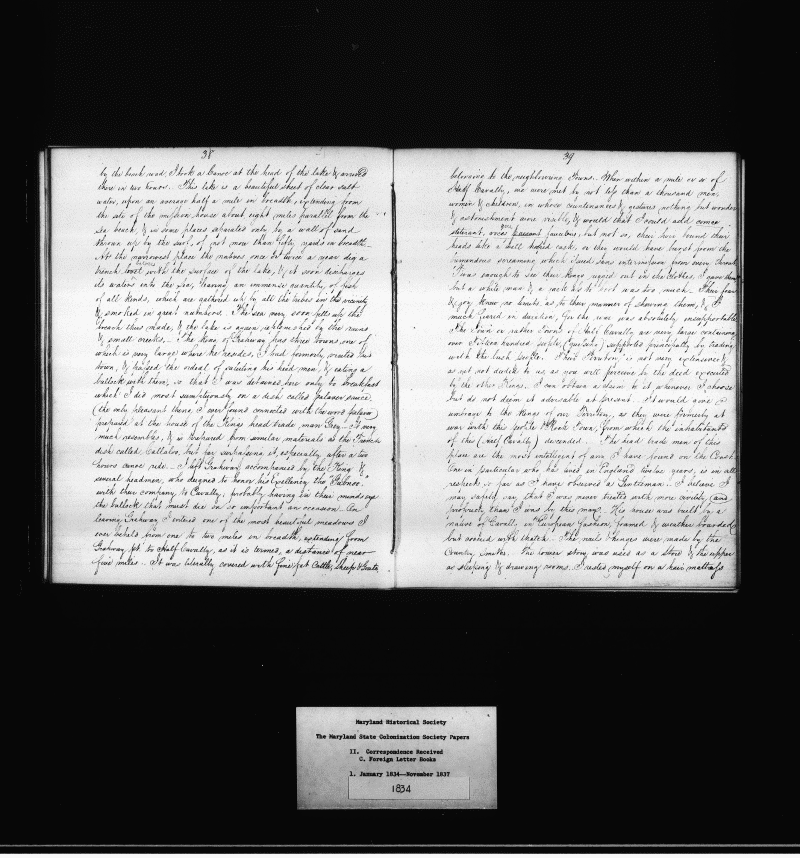 38
by the beach road, I took a Canoe at the head of the lake & arrived
there in two hours. This lake is a beautiful sheet of clear salt
water, upon an average half a mile in breadth, extending from
the site of the mission house about eight miles parallel from the
sea beach, & in some places separated only by a wall of sand
thrown up by the surf, of not more than fifty yards in breadth.
At the narrowest place the natives once or twice a year dig a
trench level with the surface of the lake, & it soon discharges
its waters into the sea, leaving an immense quantity of fish
of all kinds, which are gathered up by all the tribes in the vicinity
& smoked in great numbers. The sea very soon fills up the
breach thus made, & the lake is again replenished by the rains
& small creeks. The King of Grahway has three towns one of
which is very large where he resides, I had formerly visited his
town, & passed the ordeal of saluting his head men, & eating a
bullock with them, so that I was detained here only to breakfast
which I did most sumptuously on a dish called palaver sauce
(the only pleasant thing I ever found connected with the word palaver)
prepared at the house of the Kings head trade man Grey. It very
much resembles, & is prepared from similar materials as the French
dish called Callalou, but far surpassing it, especially after a two
hours canoe ride. I left Grahway accompanied by the King &
several headmen, who deigned to honor his Excellency the "Gubnor"
with their company, to Cavally, probably having in their minds eye
the bullock that must die on so important an occasion. On
leaving Grahway I entered one of the most beautiful meadows I
ever beheld from one to two miles in breadth, extending from
Grahway to Half Cavally, as it is termed, a distance of near
five miles. It was literally covered with fine fat Cattle, Sheep & Goats
39
belonging to the neighbouring Towns. When within a mile or so of
Half Cavally, we were met by not less than a thousand men,
women & children, in whose countenances & gestures nothing but wonder
& astonishment were visible, & would that I could add
were
but not so, they have bound their
heads like a well hooped cask, or they would have burst from the
tremendous screaming which issued sans intermission from every throat
'Twas enough to see their Kings rigged out in the clothes, I gave them
but a white man & a to boot was too much. Their fear
& joy knew no limits, as to their manner of shewing them, & I
much feared in duration, for the din was absolutely insupportable
The Town or rather Towns of Half Cavally are very large containing
over Fifteen hundred people (certain) supported principally by trading
with the bush people. Their Territory is not very extensive &
as yet not deeded to us, as you will perceive in the deed executed
by the other Kings. I can obtain a claim to it, whenever I choose
but do not deem it advisable at present. It would give
umbrage to the Kings of our Territory, as they were formerly at
war with this people & Rock Town, from which the inhabitants
of this (Half Cavally) descended. The head trade men of this
place are the most intelligent of any I have found on the Coast
One in particular who has lived in England twelve years, is in all
respects so far as I have observed a Gentleman. I believe I
may safely say that I was never treated with more civility (and
propriety) than I was by this man. His house was built by a
native of Cavally in European fashion, framed & weather boarded
but roofed with thatch. The nails & hinges were made by the
Country Smiths. The lower story was used as a Store & the upper
as sleeping & drawing rooms. I rested myself on a hair mattrass
Maryland Historical Society
The Maryland State Colonization Society Papers
II. Correspondence Received
C. Foreign Letter Books
1. January 1834--November 1837
1834